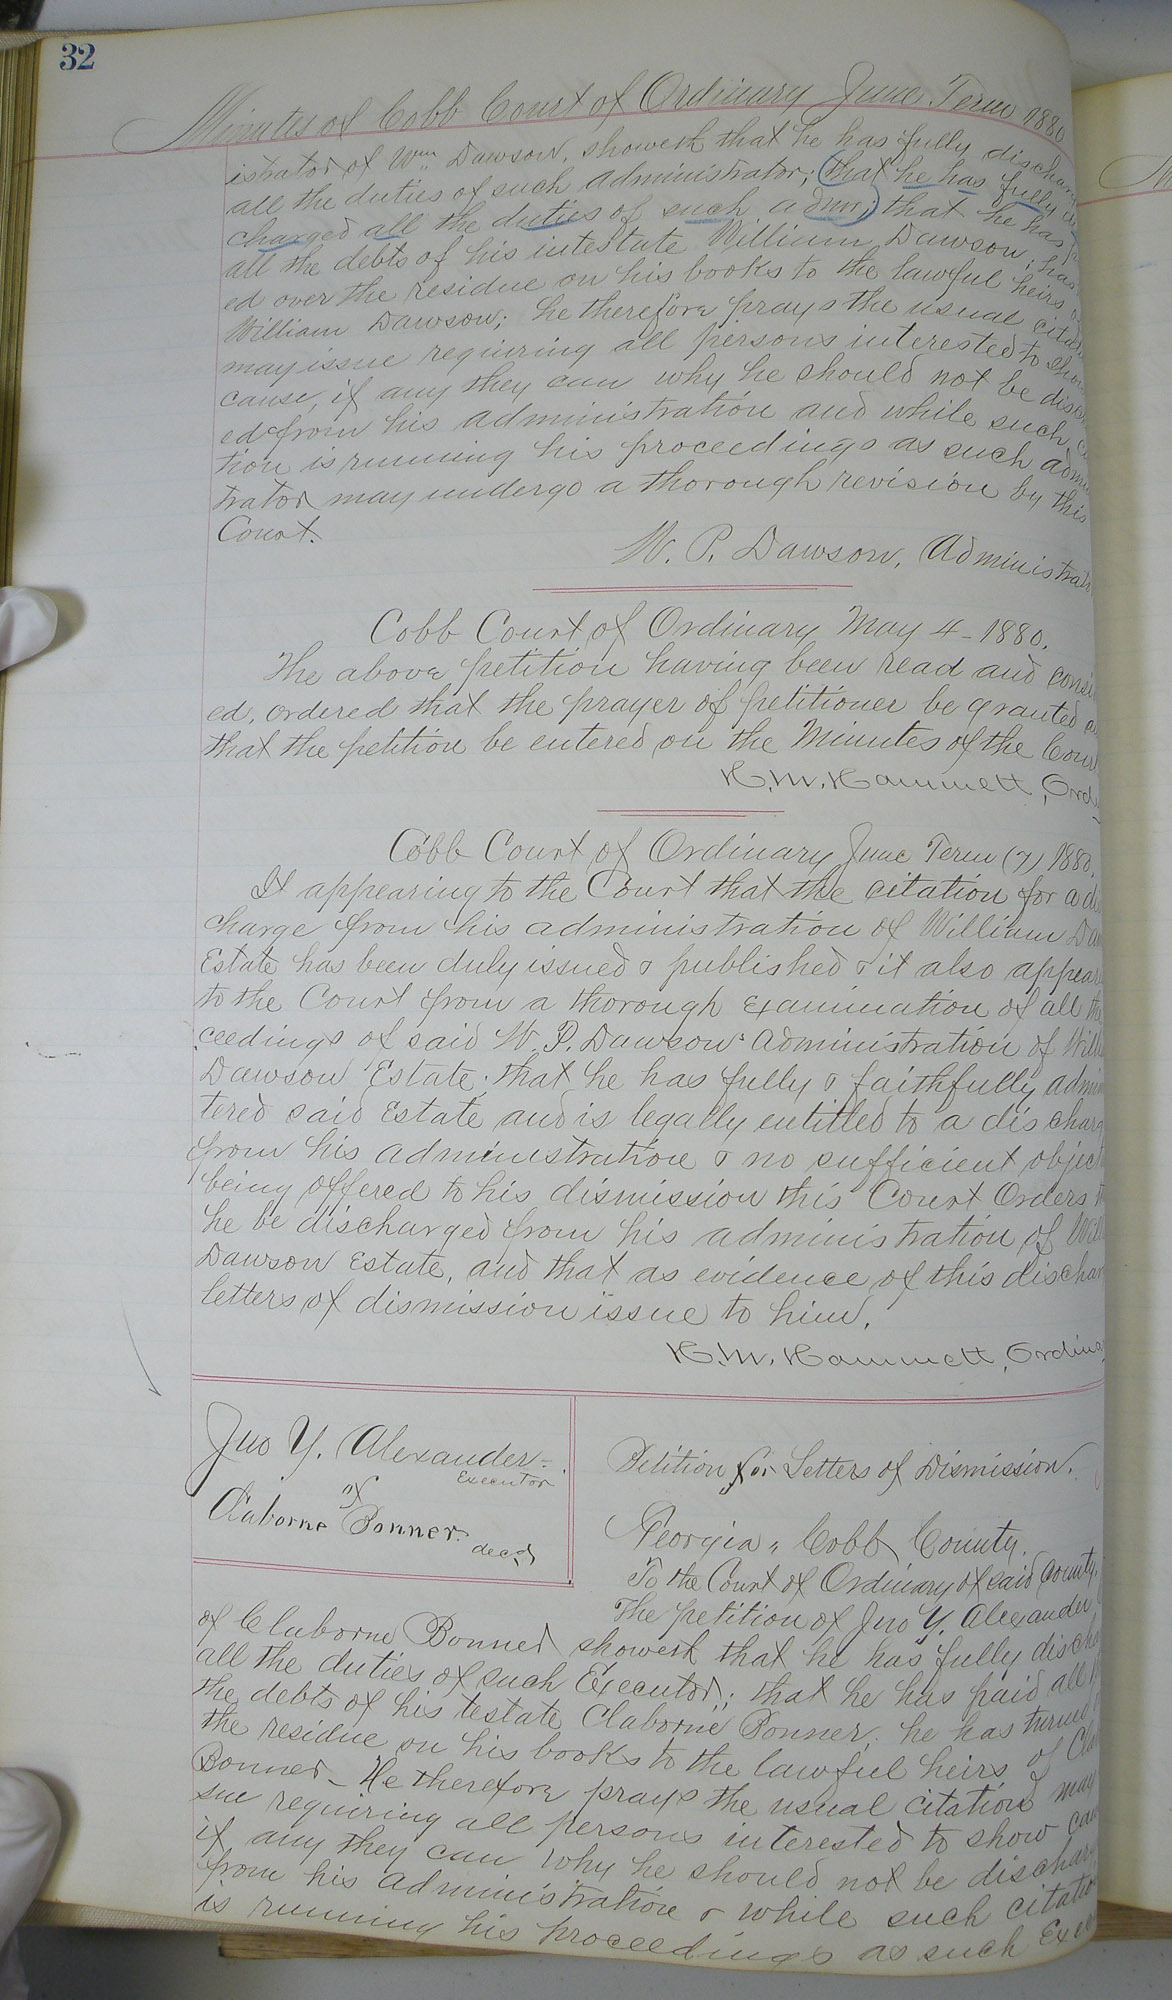 32
Minutes of Cobb Court of Ordinary June Term 1880
istrator of Wm Dawson, showeth that he has fully dischar
all the duties of such administrator; that he has fully
charged all the duties of such admr; that he has
all the debts of his intestate William Dawson, has
ed over the residue on his books to the lawful heirs
William Dawson; he therefore prays the usual
may issue requiring all persons interested to show
cause, if any they can why he should not be disc
ed from his administration and while such
tion is running his proceedings as such adm
trator may undergo a thorough revision by this
Court.
W. P. Dawson, Administrat
Cobb Court of Ordinary May 4 - 1880.
The above petition having been read and consi
ed, ordered that the prayer of petitioner be granted
that the petition be entered on the Minutes of the Cour
H. M. Hammett, Ord
Cobb Court of Ordinary June Term (7) 1880.
It appearing to the Court that the citation for a di
charge from his administration of William Da
Estate has been duly issued & published & it also appear
to the Court from a thorough examination of all the
ceedings of said W. P. Dawson's administration of Will
Dawson Estate. that he has fully & faithfully admi
tered said Estate and is legally entitled to a discharg
from his administration & no sufficient object
being offered to his dismission this Court Orders
he be discharged from his administration of Will
Dawson Estate, and that as evidence of this dischar
letters of dismission issue to him.
H. M. Hammett, Ordina
Jno Y. Alexander
Executor
of
Claborne Bonner
decd
Petition for Letters of Dismission.
Georgia, Cobb County.
To the Court of Ordinary of said County.
The petition of Jno Y. Alexander
of Claborne Bonner showeth that he has fully discha
all the duties of such Executor; that he has paid all
the debts of his testate Claborne Bonner, he has turned
the residue on his books to the lawful heirs of Cla
Bonner - He therefore prays the usual citation may
sue requiring all persons interested to show cau
if any they can why he should not be dischar
from his administration & while such citatio
is running his proceedings as such Exec